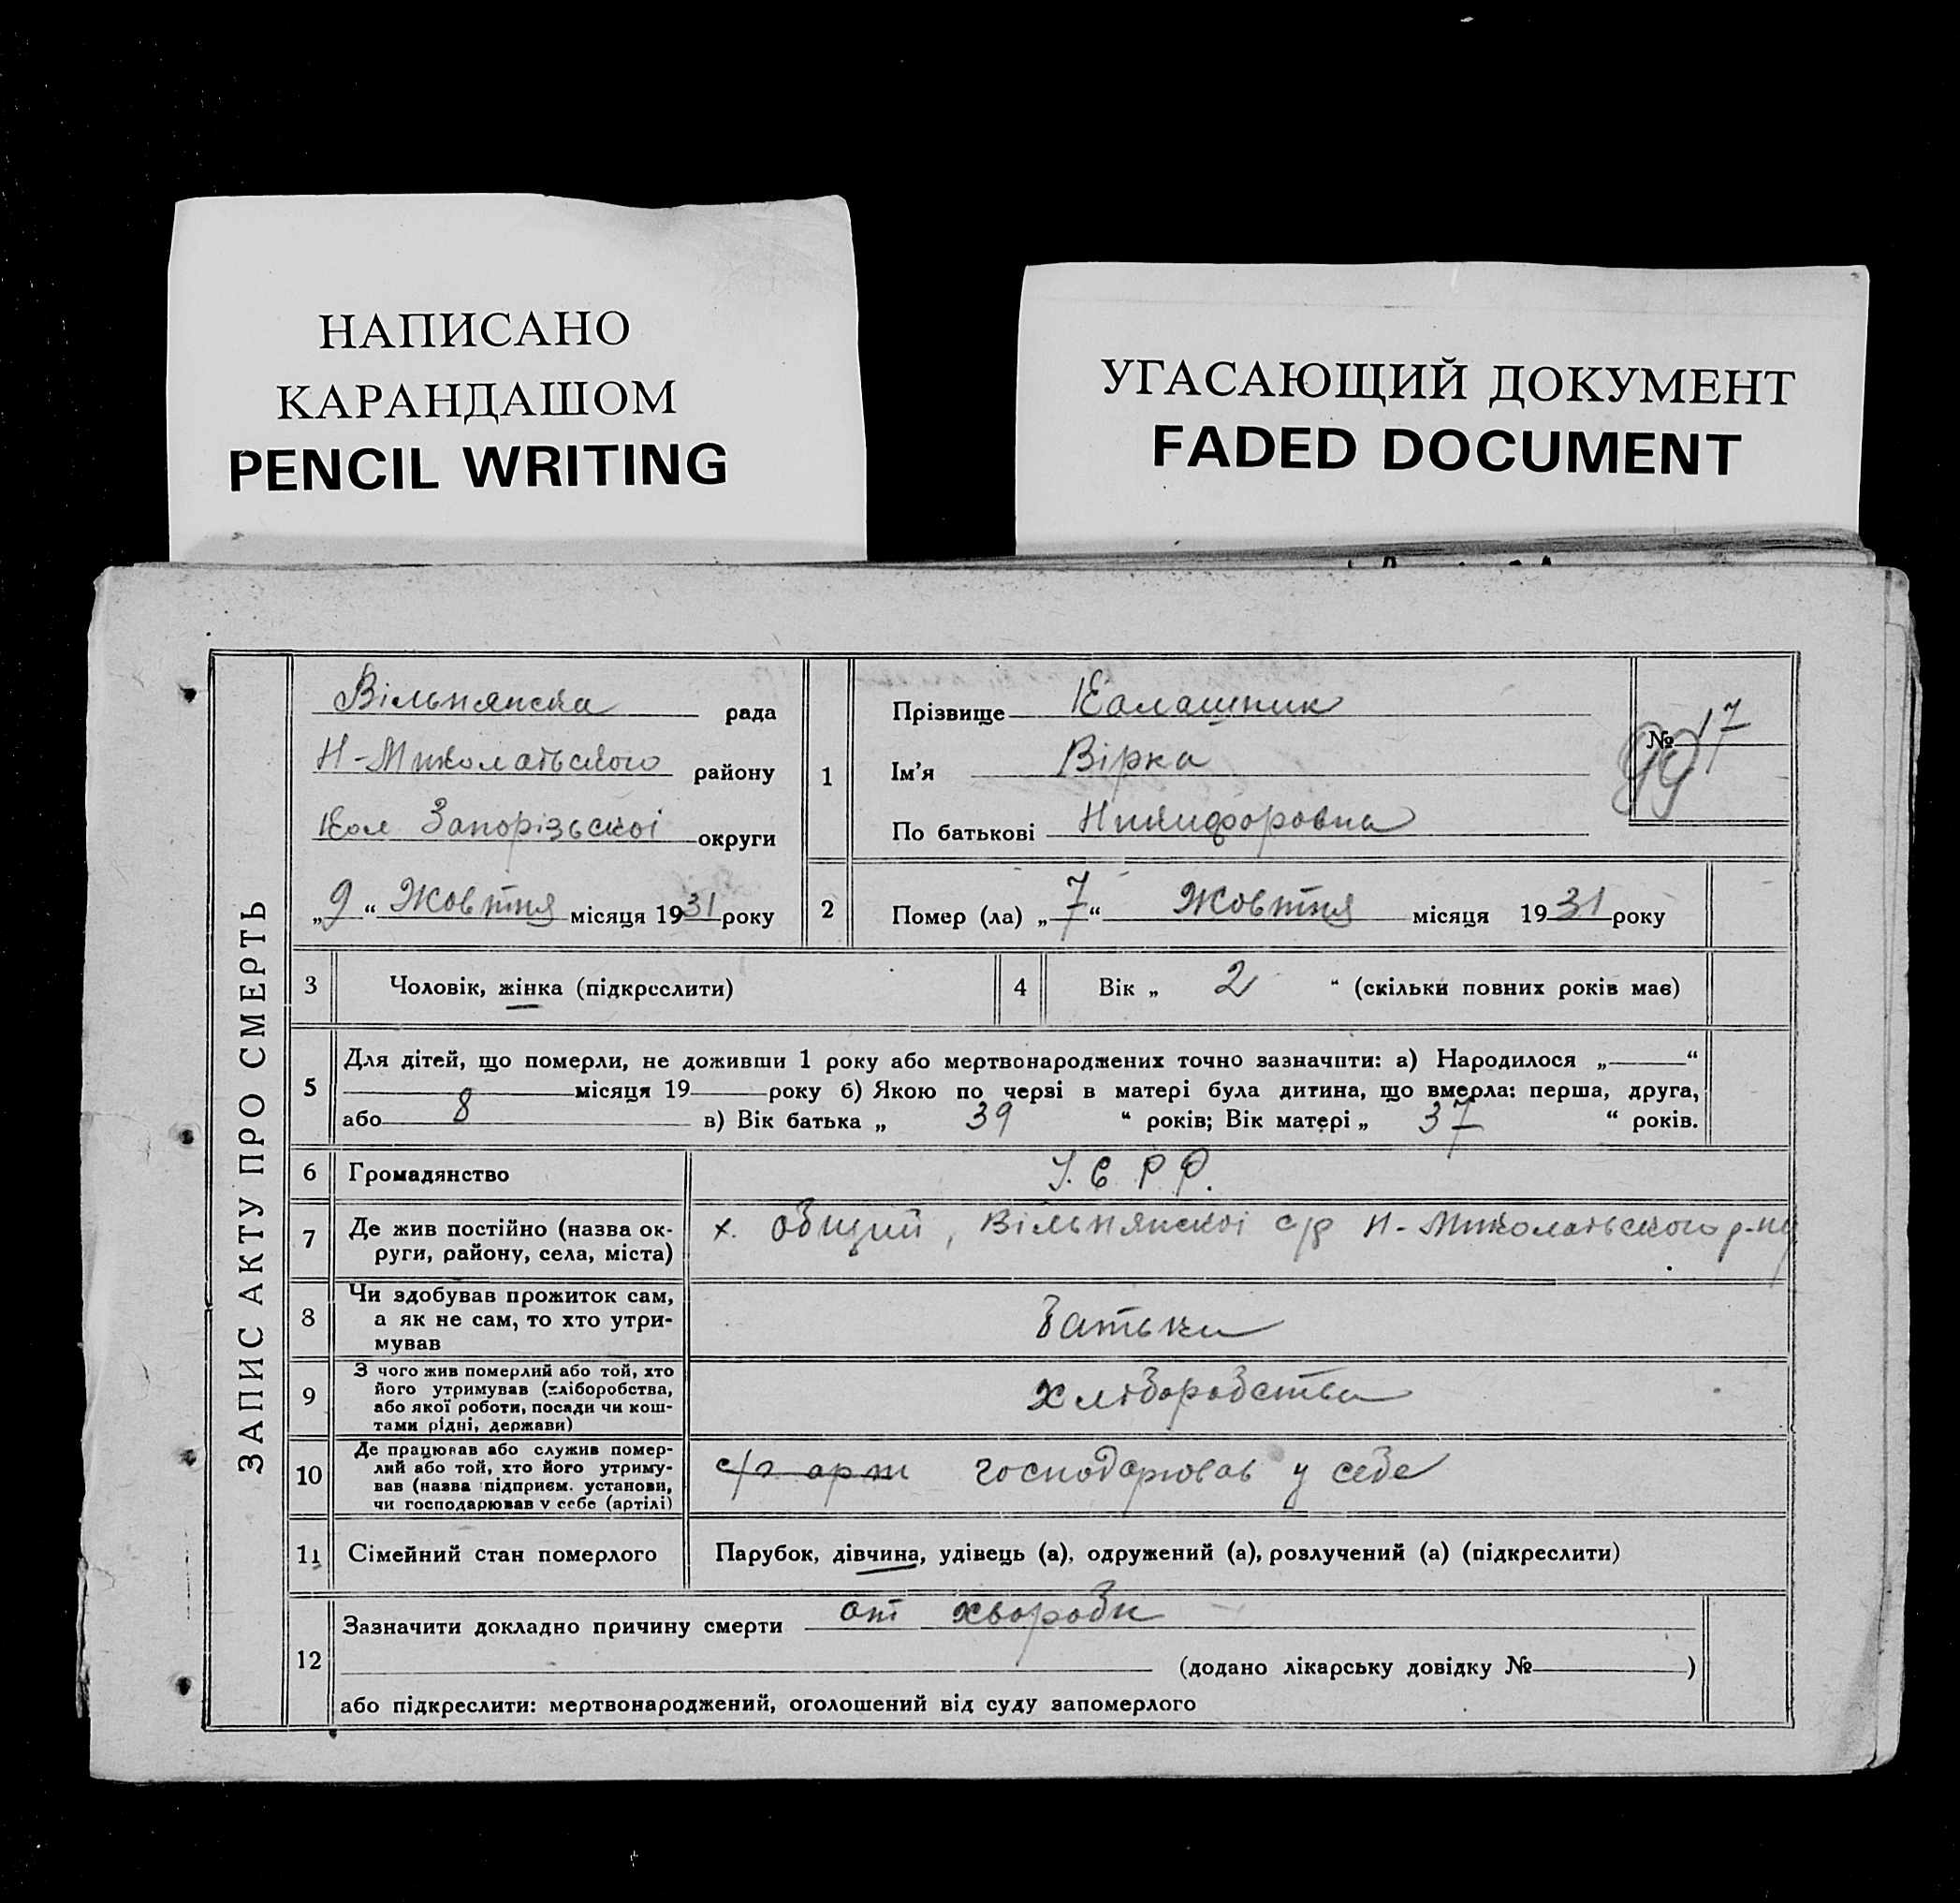 НАПИСАНО
КАРАНДАШОМ
PENCIL WRITING
УГАСАЮЩИЙ ДОКУМЕНТ
FADED DOCUMENT
ЗАПИС АКТУ ПРО СМЕРТЬ
Вільнянска рада
Н-Миколаївского району
Кол Запорізської округи
„9“ Жовтня місяця 1931 року
1
Прізвище Калашник
Ім'я Вірка
По батькові Никифоровна
№ 17
99
2 Помер (ла) „7“ Жовтня місяця 1931 року
3 Чоловік, жінка (підкреслити)
4 Вік „ 2 “ (скільки повних років має)
5 Для дітей, що померли, не доживши 1 року або мертвонароджених точно зазначити: а) Народилося „ “
місяця 19 року б) Якою по черзі в матері була дитина, що вмерла: перша, друга,
або 8 в) Вік батька „ 39 “ років; Вік матері „ 37 “ років.
6 Громадянство У.С.Р.Р.
7 Де жив постійно (назва ок-
руги, району, села, міста)
х. Общий, Вільнянскоі с/р Н-Миколаівского р-ну
8 Чи здобував прожиток сам,
а як не сам, то хто утри-
мував
батьки
9 З чого жив померлий або той, хто
його утримував (хліборобства,
або якої роботи, посади чи кош-
тами рідні, держави)
хліборобства
10 Де працював або служив помер-
лий або той, хто його утриму-
вав (назва підприєм. установи,
чи господарював у себе (артілі)
с/г арт господарював у себе
11 Сімейний стан померлого Парубок, дівчина, удівець (а), одружений (а), розлучений (а) (підкреслити)
12 Зазначити докладно причину смерти от хвороби
(додано лікарську довідку № )
або підкреслити: мертвонароджений, оголошений від суду запомерлого